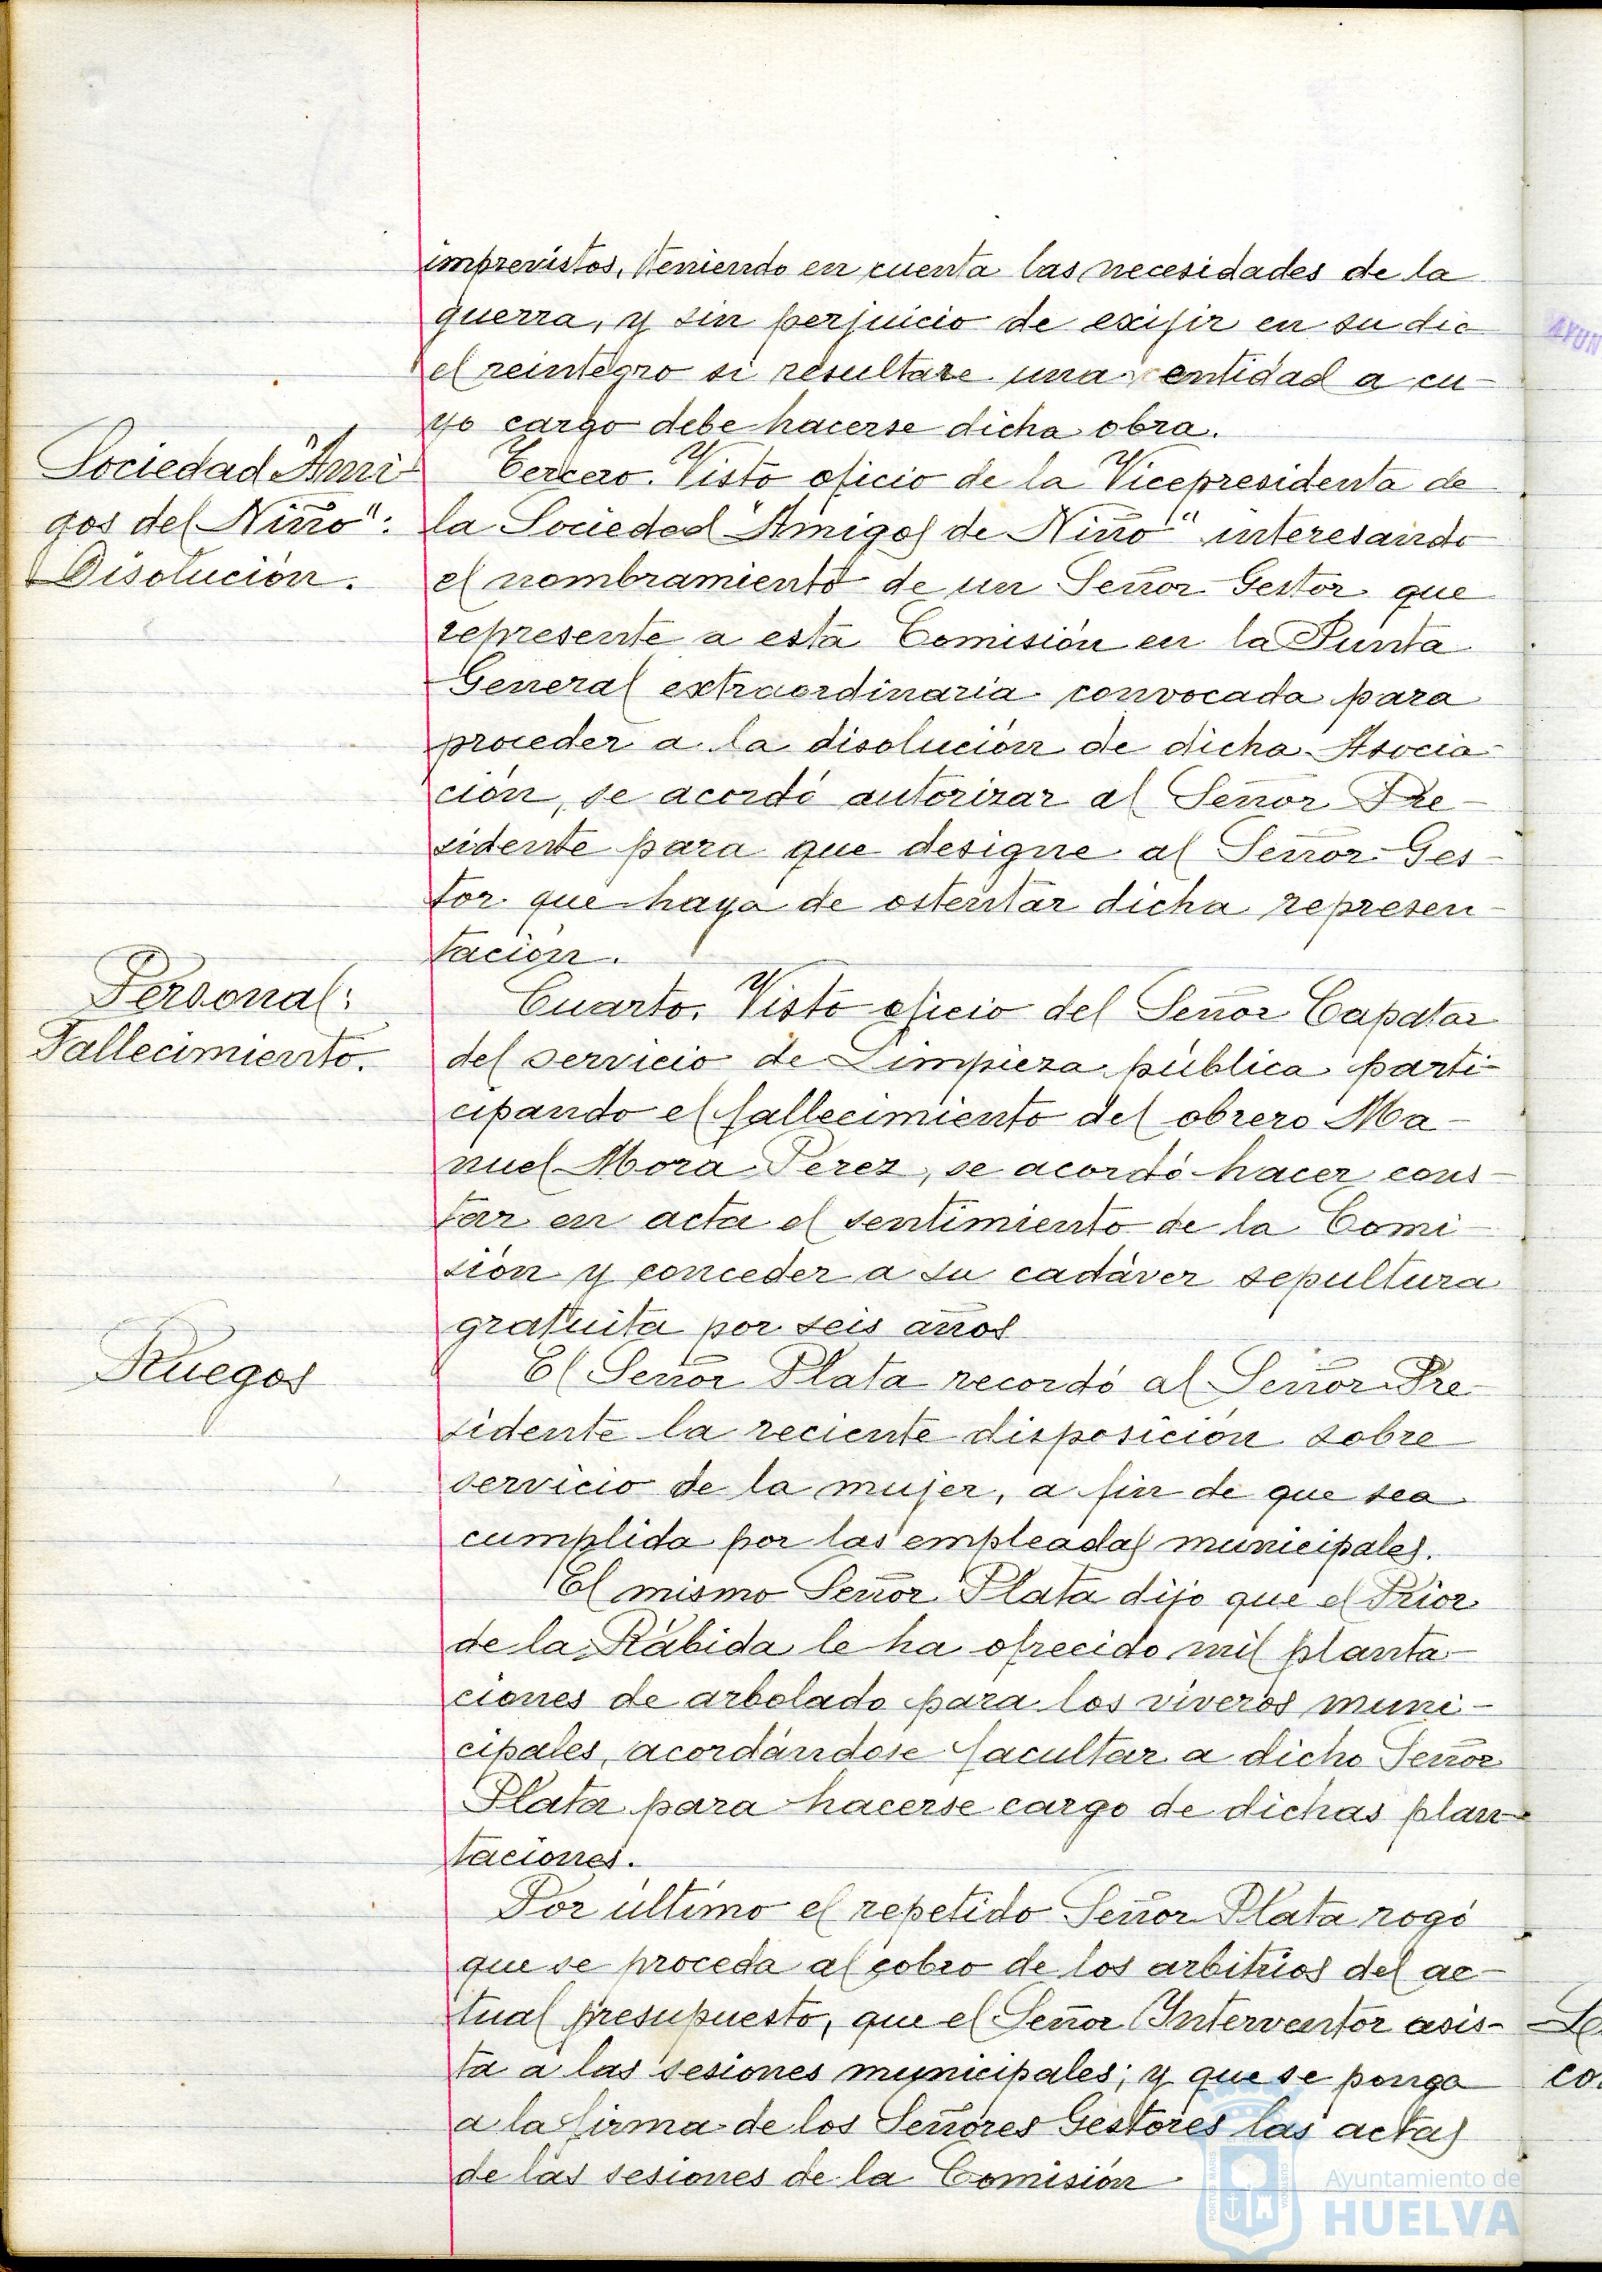 imprevistos, teniendo en cuenta las necesidades de la
guerra, y sin perjuicio de exijir en su dia
el reintegro si resultare una entidad a cu-
yo cargo debe hacerse dicha obra.
Sociedad "Ami-
gos del Niño":
Disolución.
Tercero. Visto oficio de la Vicepresidenta de
la Sociedad "Amigos de Niño" interesando
el nombramiento de un Señor Gestor que
represente a esta Comisión en la Junta
General extraordinaria convocada para
proceder a la disolución de dicha Asocia-
ción, se acordó autorizar al Señor Pre-
sidente para que designe al Señor Ges-
tor que haya de ostentar dicha represen-
tación.
Personal:
Fallecimiento.
Cuarto. Visto oficio del Señor Capataz
del servicio de Limpieza pública parti-
cipando el fallecimiento del obrero Ma-
nuel Mora Perez, se acordó hacer cons-
tar en acta el sentimiento de la Comi-
sión y conceder a su cadáver sepultura
gratuita por seis años
Ruegos
El Señor Plata recordó al Señor Pre-
sidente la reciente disposición sobre
servicio de la mujer, a fin de que sea
cumplida por las empleadas municipales.
El mismo Señor Plata dijo que el Prior
de la Rábida le ha ofrecido mil planta-
ciones de arbolado para los viveros muni-
cipales, acordándose facultar a dicho Señor
Plata para hacerse cargo de dichas plan-
taciones.
Por último el repetido Señor Plata rogó
que se proceda al cobro de los arbitrios del ac-
tual presupuesto, que el Señor Interventor asis-
ta a las sesiones municipales; y que se ponga
a la firma de los Señores Gestores las actas
de las sesiones de la Comisión
AYUN
Ayuntamiento de
HUELVA